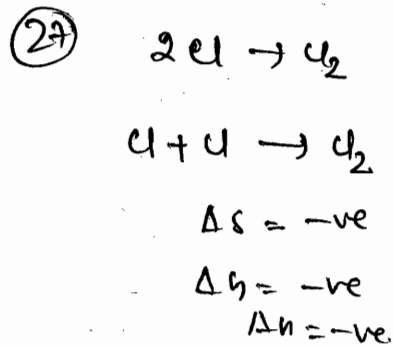 27 2Cl → Cl₂
Cl + Cl → Cl₂
ΔS = -ve
ΔG = -ve
ΔH = -ve